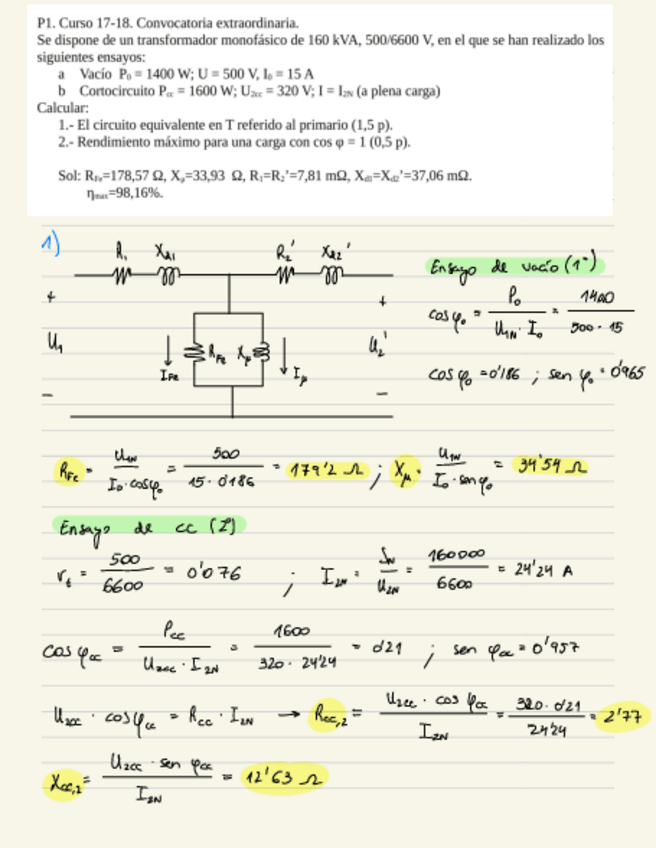 P1. Curso 17-18. Convocatoria extraordinaria.
Se dispone de un transformador monofásico de 160 kVA, 500/6600 V, en el que se han realizado los
siguientes ensayos:
a Vacío P₀ = 1400 W; U = 500 V, I₀ = 15 A
b Cortocircuito Pcc = 1600 W; U2cc = 320 V; I = I2N (a plena carga)
Calcular:
1.- El circuito equivalente en T referido al primario (1,5 p).
2.- Rendimiento máximo para una carga con cos φ = 1 (0,5 p).
Sol: RFe=178,57 Ω, Xμ=33,93 Ω, R₁=R₂'=7,81 mΩ, Xd1=Xd2'=37,06 mΩ.
ηmax=98,16%.
1)
R₁ Xd1 R₂' Xd2'
+ U₁ - IFe RFe Xμ Iμ + U₂' -
Ensayo de vacío (1º)
cos φ₀ = P₀ / U1N · I₀ = 1400 / 500 · 15
cos φ₀ = 0'186 ; sen φ₀ = 0'965
RFe = U1N / I₀ · cos φ₀ = 500 / 15 · 0'186 = 179'2 Ω ; Xμ = U1N / I₀ · sen φ₀ = 34'54 Ω
Ensayo de cc (2º)
rt = 500 / 6600 = 0'076 ; I2N = SN / U2N = 160000 / 6600 = 24'24 A
cos φcc = Pcc / U2cc · I2N = 1600 / 320 · 24'24 = 0'21 ; sen φcc = 0'957
U2cc · cos φcc = Rcc · I2N → Rcc,2 = U2cc · cos φcc / I2N = 320 · 0'21 / 24'24 = 2'77
Xcc,2 = U2cc · sen φcc / I2N = 12'63 Ω